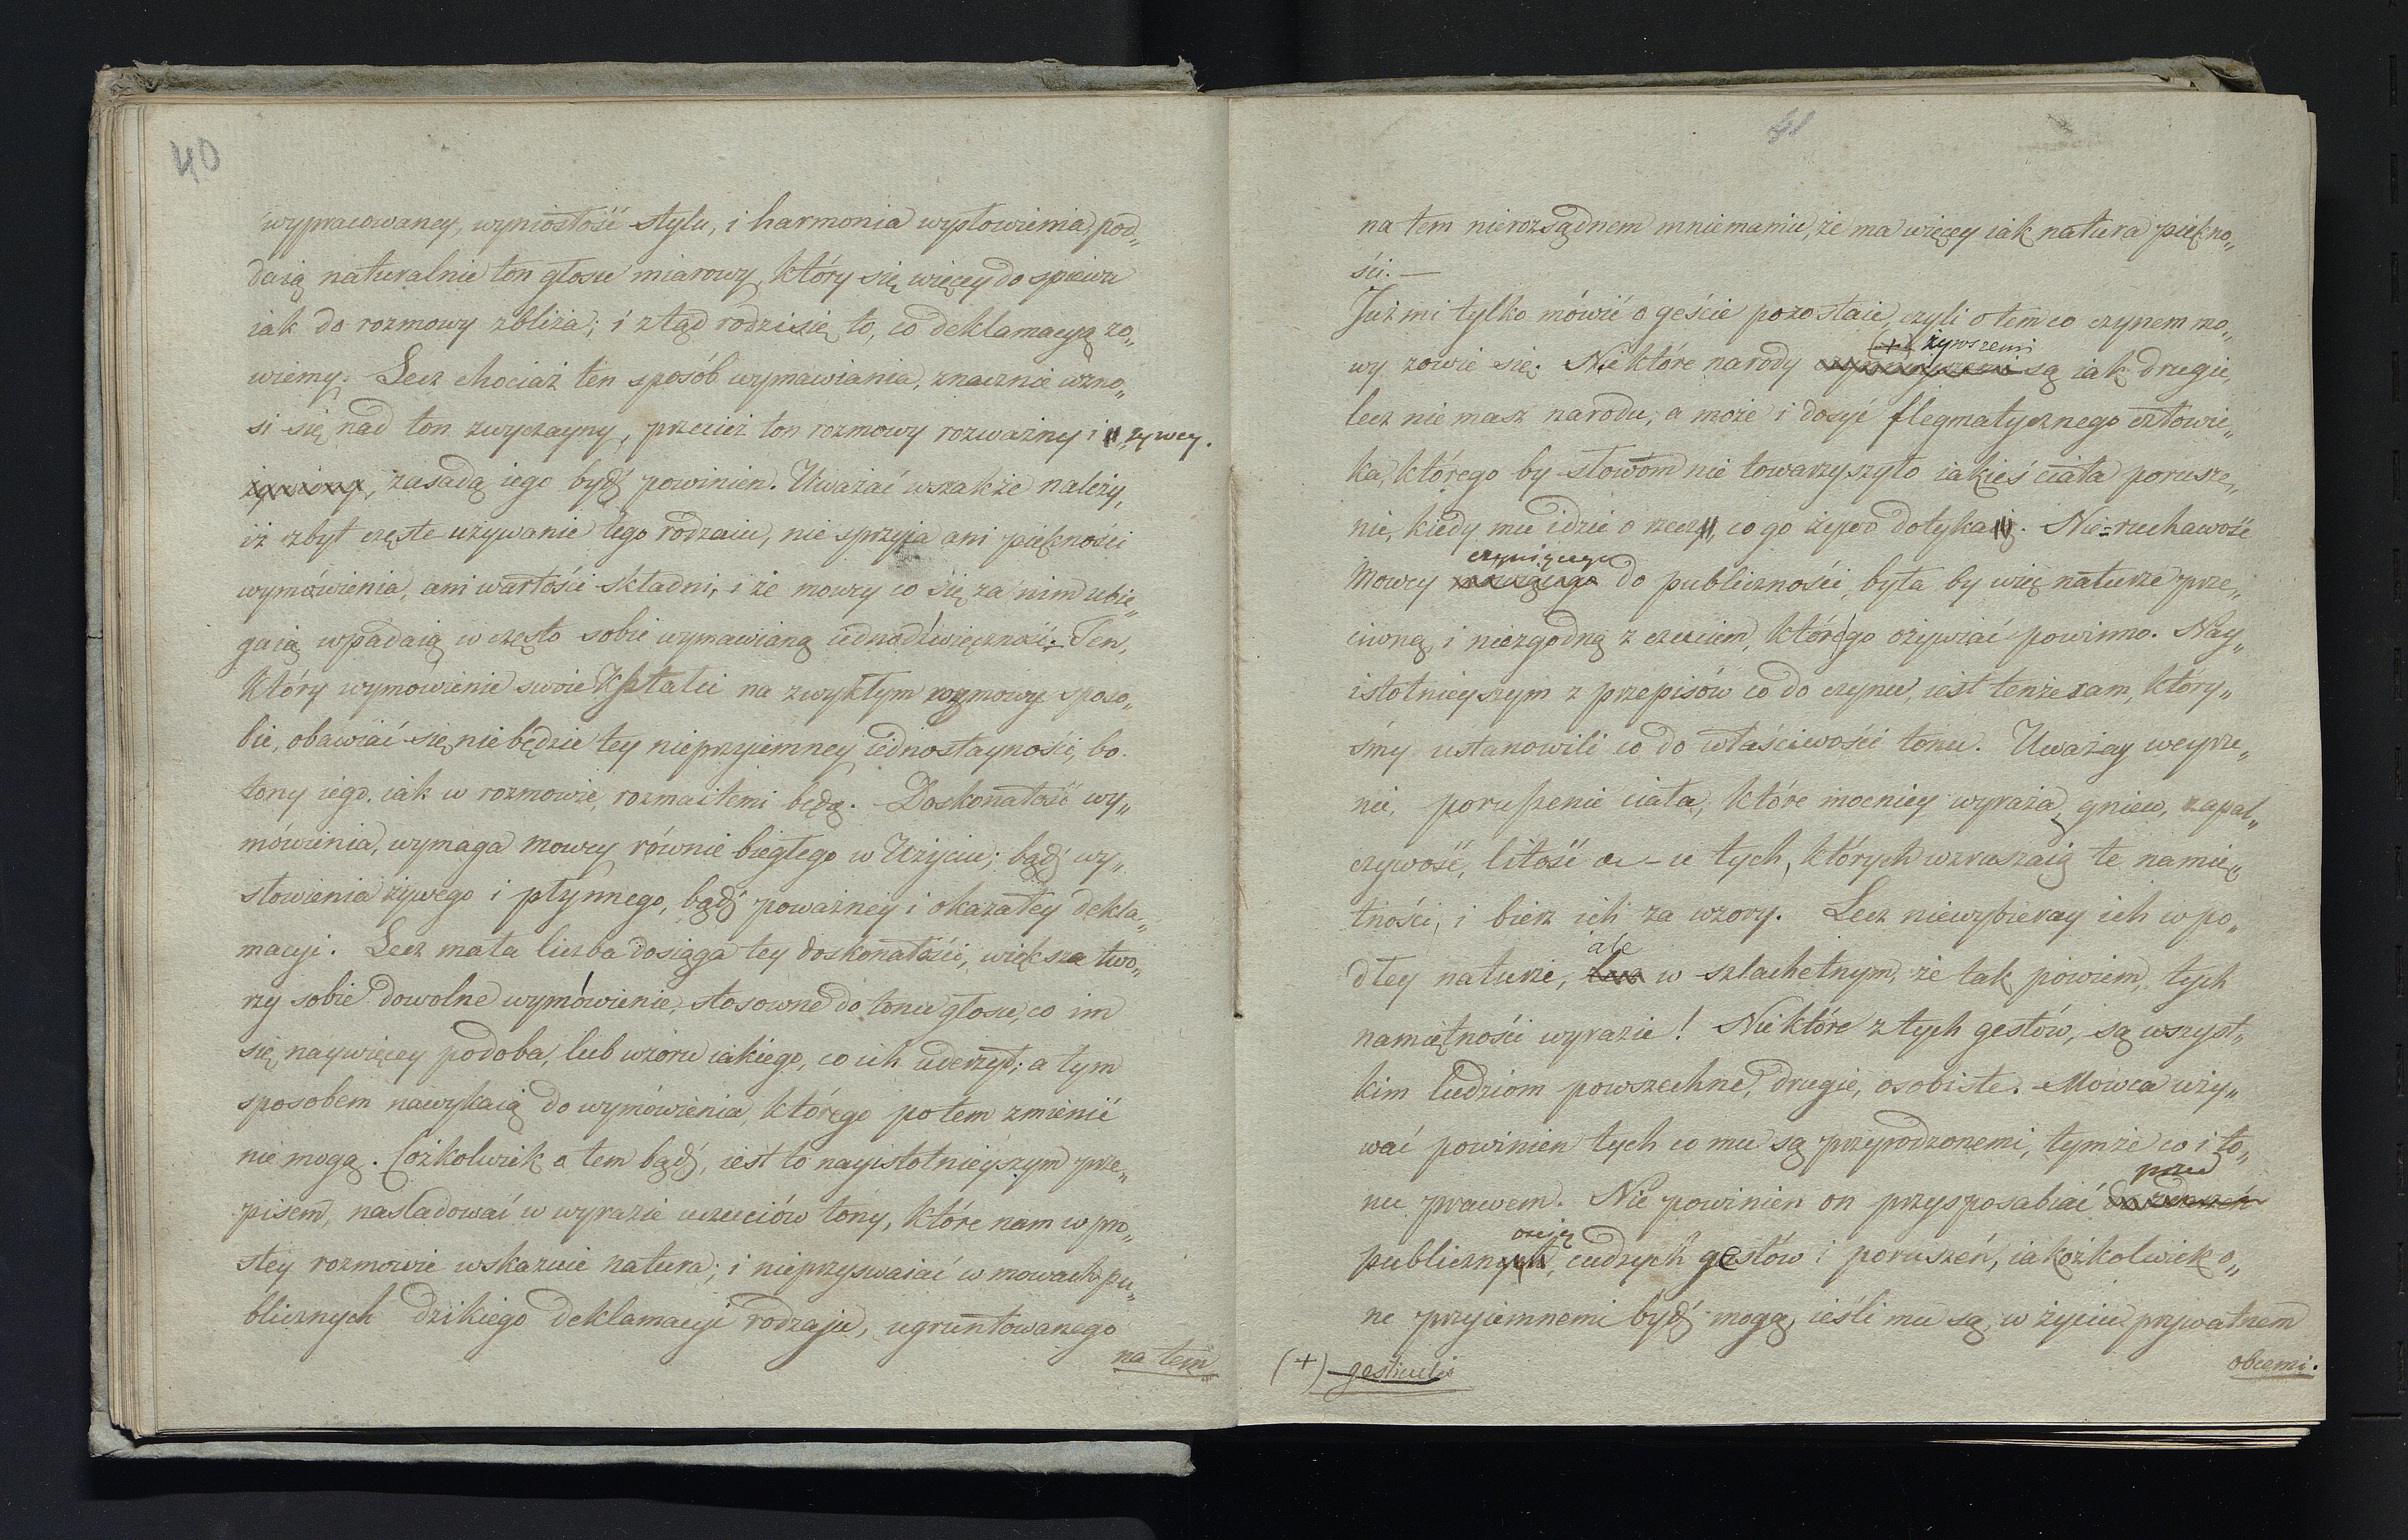 40
wypracowaney, wyniosłość stylu, i harmonia wysłowienia, pod„
daią naturalnie ton głosu miarowy, który się więcey do spiewu
iak do rozmowy zbliża; i ztąd rodzi się to, co deklamacyą zo„
wiemy. Lecz chociaż ten sposób wymawiania, znacznie wzno„
si się nad ton zwyczayny, przecież ton rozmowy rozważney i żywey.
zasadą iego bydź powinien. Uważać wszakże należy,
iż zbyt częste używanie tego rodzaiu, nie sprzyja ani piękności
wymówienia, ani wartości składni, i że mowcy co się za nim ubie„
gaią wpadaią w często sobie wymawianą iednodźwięczność. Ten,
który wymówienie swoie kształci na zwykłym rozmowy sposo„
bie, obawiać się nie będzie tey nieprzyiemney iednostayności, bo
tony iego, iak w rozmowie, rozmaitemi będą. Doskonałość wy„
mówienia, wymaga mowcy równie biegłego w użyciu; bądź wy„
słowienia żywego i płynnego, bądź poważney i okazałey dekla„
macyi. Lecz mała liczba dosiąga tey doskonałości, większa two„
rzy sobie dowolne wymówienie, stosowne do tonu głosu, co im
się naywięcey podoba, lub wzoru iakiego, co ich uderzył; a tym
sposobem nawykaią do wymówienia, którego potem zmienić
nie mogą. Cożkolwiek o tem bądź, iest to nayistotnieyszym prze„
pisem, nasladować w wyrazie uczuciów tony, które nam w pro„
stey rozmowie wskazuie natura; i nieprzyswaiać w mowach pu„
blicznych dzikiego deklamacyi rodzaju, ugruntowanego
na tem
41
na tem nierozsądnem mniemaniu, że ma więcey iak natura piękno„
ści. —
Już mi tylko mówić o geście pozostaie, czyli o tem co czynem mo„
(+) żywszemi
wy zowie się. Niektóre narody są iak drugie,
lecz nie masz narodu, a może i dosyć flegmatycznego człowie„
ka, którego by słowom nie towarzyszyło iakieś ciała porusze„
nie, kiedy mu idzie o rzecz, co go żywo dotyka. Nie=ruchawość
czyniącego
Mowcy do publiczności, była by więc naturze prze„
ciwną, i niezgodną z czuciem, które go ożywiać powinno. Nay„
istotnieyszym z przepisów co do czynu, iest tenże sam, który„
śmy ustanowili co do właściwości tonu. Uważay weyrze„
nie, poruszenie ciała, które mocniey wyraża, gniew, zapal„
czywość, litość u tych, których wzruszaią te namię„
tności, i bierz ich za wzory. Lecz niewybieray ich w po„
ale
dłey naturze, w szlachetnym, że tak powiem, tych
namiętności wyrazie! Niektóre z tych gestów, są wszyst„
kim ludziom powszechne, drugie, osobiste. Mowca uży„
wać powinien tych co mu są przyrodzonemi, tymże co i to„
przed
nu prawem. Nie powinien on przysposabiać
publicznością, cudzych gestów i poruszeń, iakożkolwiek o„
ne przyiemnemi bydź mogą, ieśli mu są, w życiu prywatnem
(+) gesticulis
obcemi.